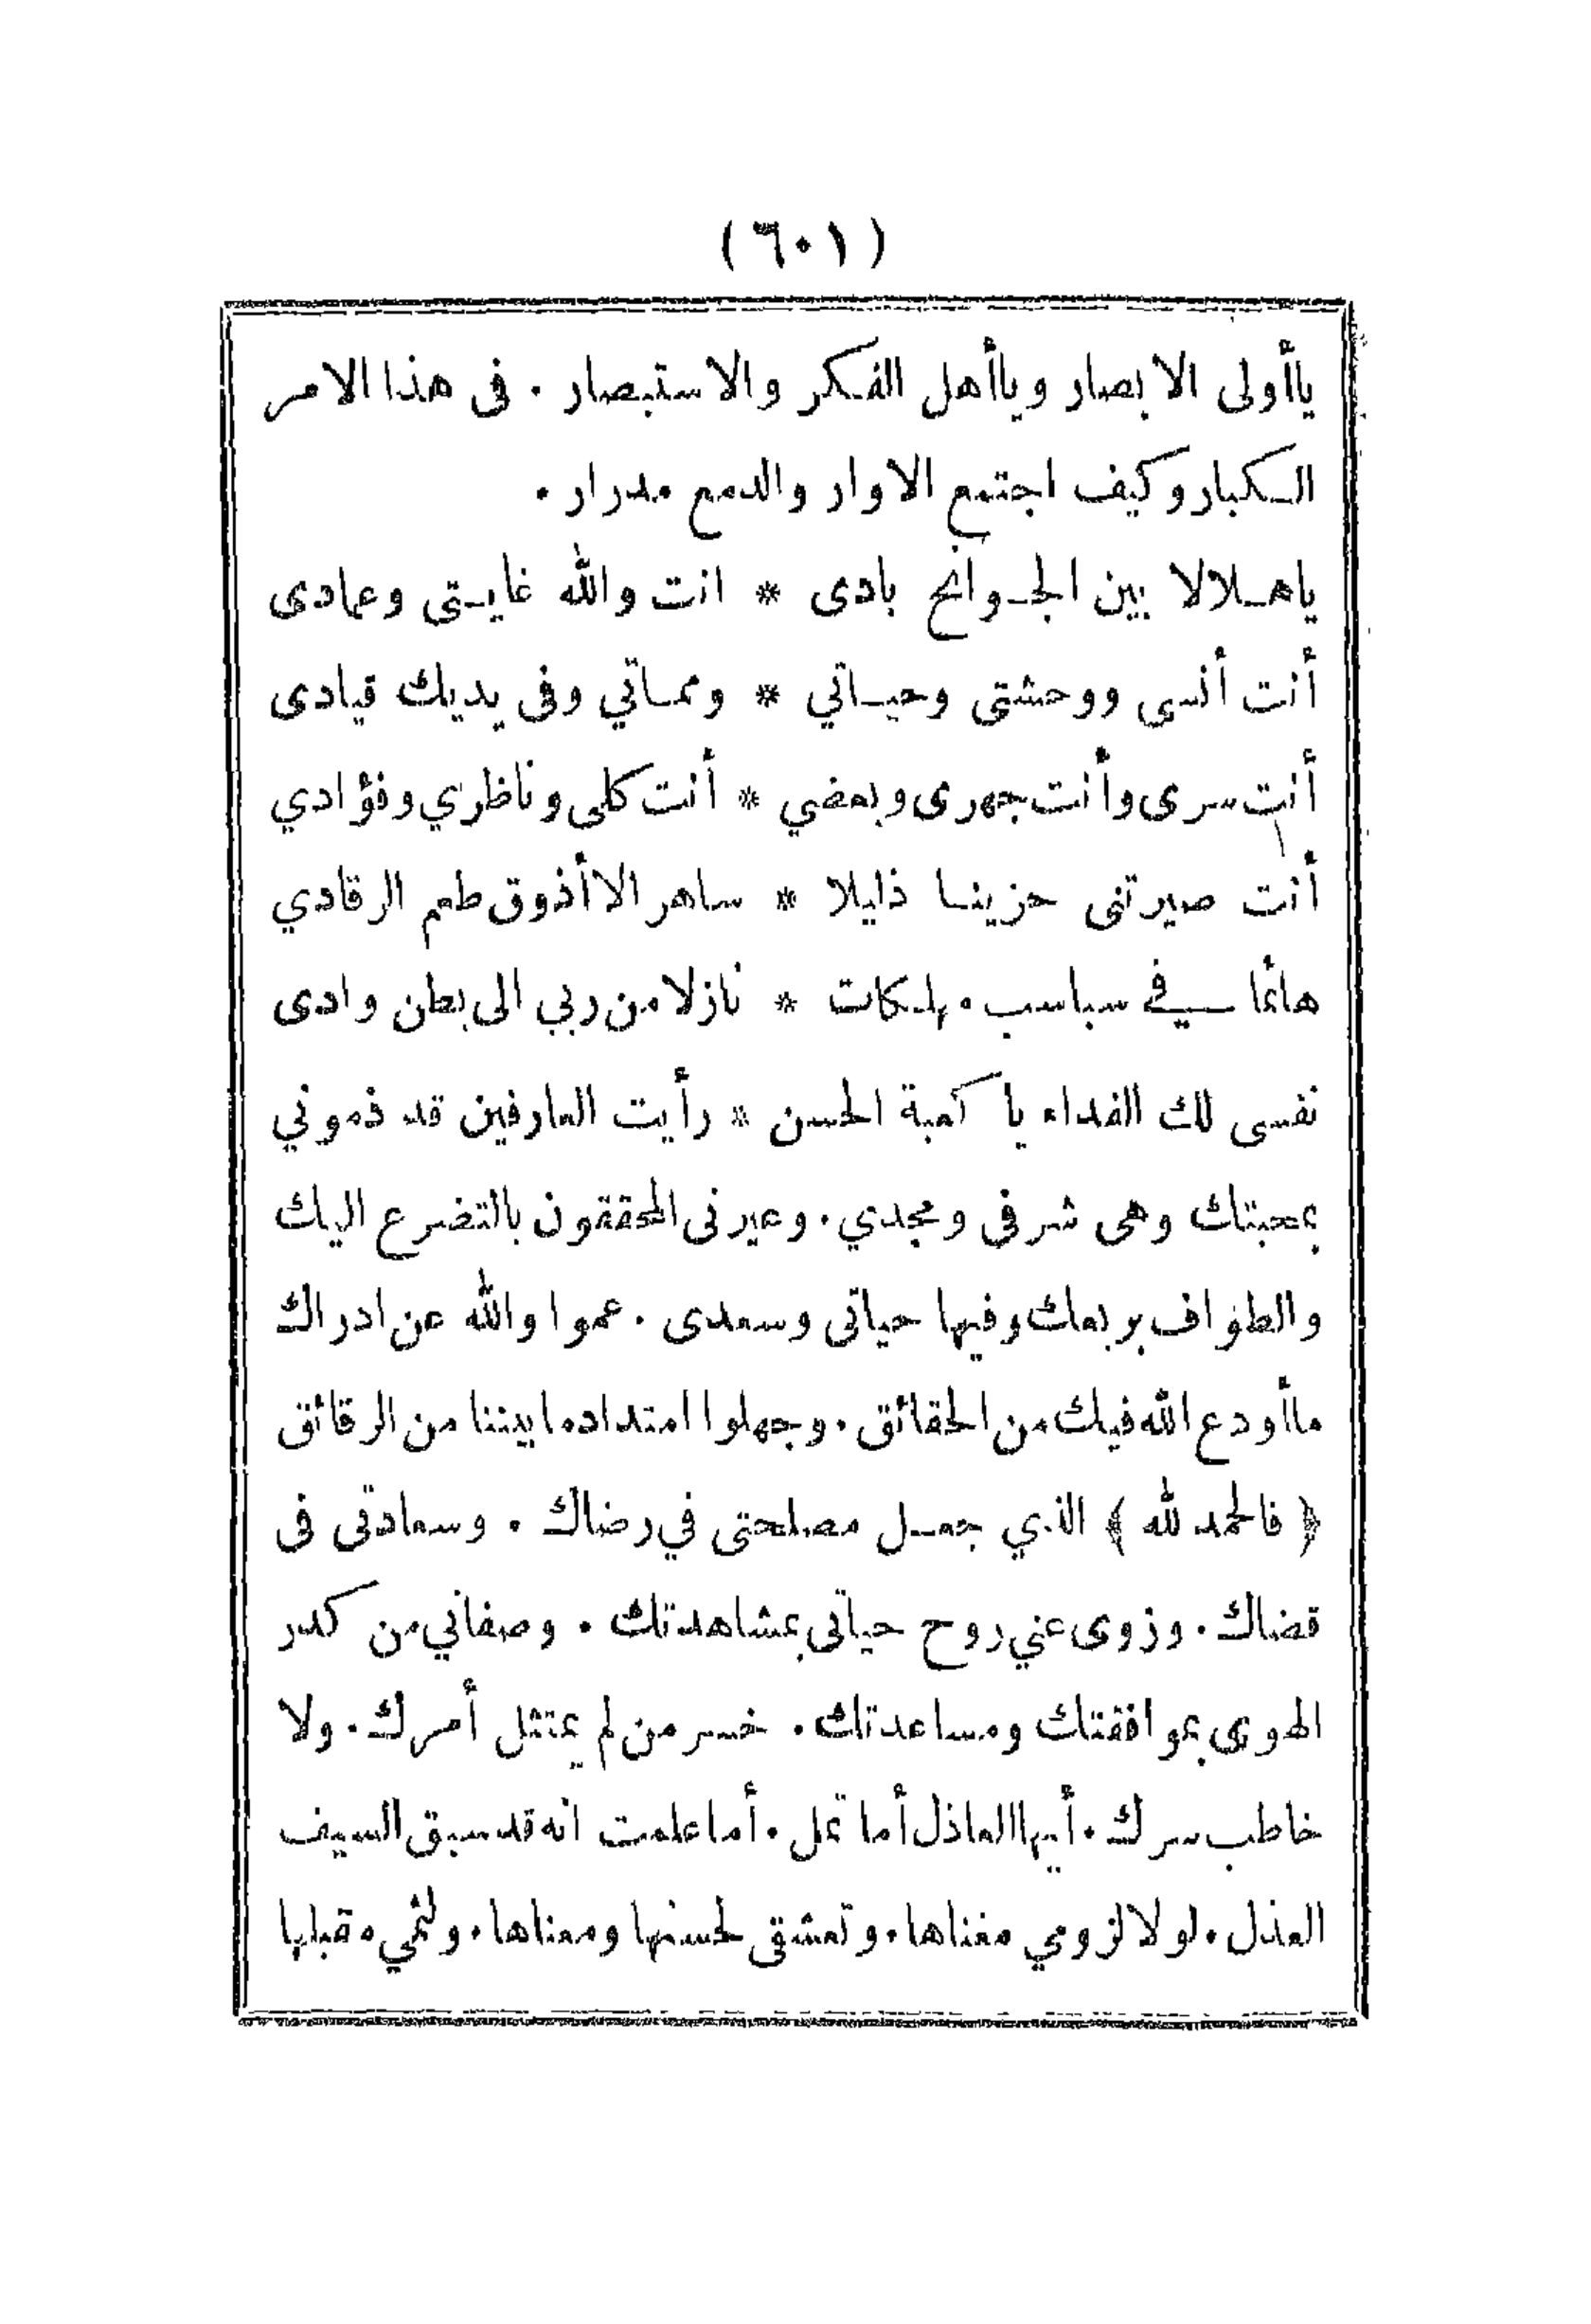 (٦٠١)
ياأولى الابصار وياأهل الفكر والاستبصار . فى هذا الامر
الكبار وكيف اجتمع الاوار والدمع مدرار .
ياهلالا بين الجوانح بادى * انت والله غايتى وعمادى
أنت أنسى ووحشتى وحياتي * ومماتي وفى يديك قيادى
أنت سرى وأنت جهرى وبعضي * أنت كلى وناظري وفؤادي
أنت صيرتنى حزينا ذليلا * ساهرا لا أذوق طعم الرقادي
هائما في سباسب مهلكات * نازلا من ربي الى بطن وادى
نفسى لك الفداء يا كعبة الحسن * رأيت العارفين قد ذموني
بمحبتك وهى شرفى ومجدي . وعيرنى المحققون بالتضرع اليك
والطواف بربعك وفيها حياتى وسعدى . عموا والله عن ادراك
ماأودع الله فيك من الحقائق . وجهلوا امتداد ما بيننا من الرقائق
﴿ فالحمد لله ﴾ الذي جعل مصلحتى في رضاك . وسعادتى فى
قضاك . وزوى عني روح حياتى بمشاهدتك . وصفاني من كدر
الهوى بموافقتك ومساعدتك . خسر من لم يمتثل أمرك . ولا
خاطب سرك . أيها العاذل أما تمل . أما علمت انه قد سبق السيف
العذل . لولا لزومي مغناها . وتعشقى لحسنها ومعناها . ولثمي مقبلها